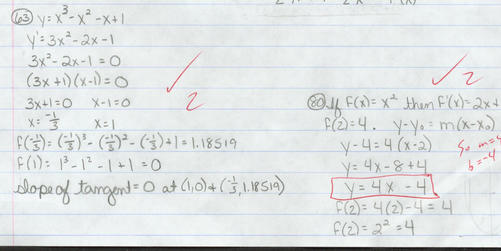 63 y = x³ - x² - x + 1
y' = 3x² - 2x - 1
3x² - 2x - 1 = 0
(3x+1)(x-1) = 0
3x+1=0 x-1=0
x = -1/3 x=1
f(-1/3) = (-1/3)³ - (-1/3)² - (-1/3) + 1 = 1.18519
f(1) = 1³ - 1² - 1 + 1 = 0
slope of tangent = 0 at (1,0) + (-1/3, 1.18519)
✓
2
✓ 2
80 If f(x) = x² then f'(x) = 2x +
f(2) = 4. y - y₀ = m(x - x₀)
y - 4 = 4(x - 2)
y = 4x - 8 + 4
y = 4x - 4
f(2) = 4(2) - 4 = 4
f(2) = 2² = 4
So m = 4
b = -4